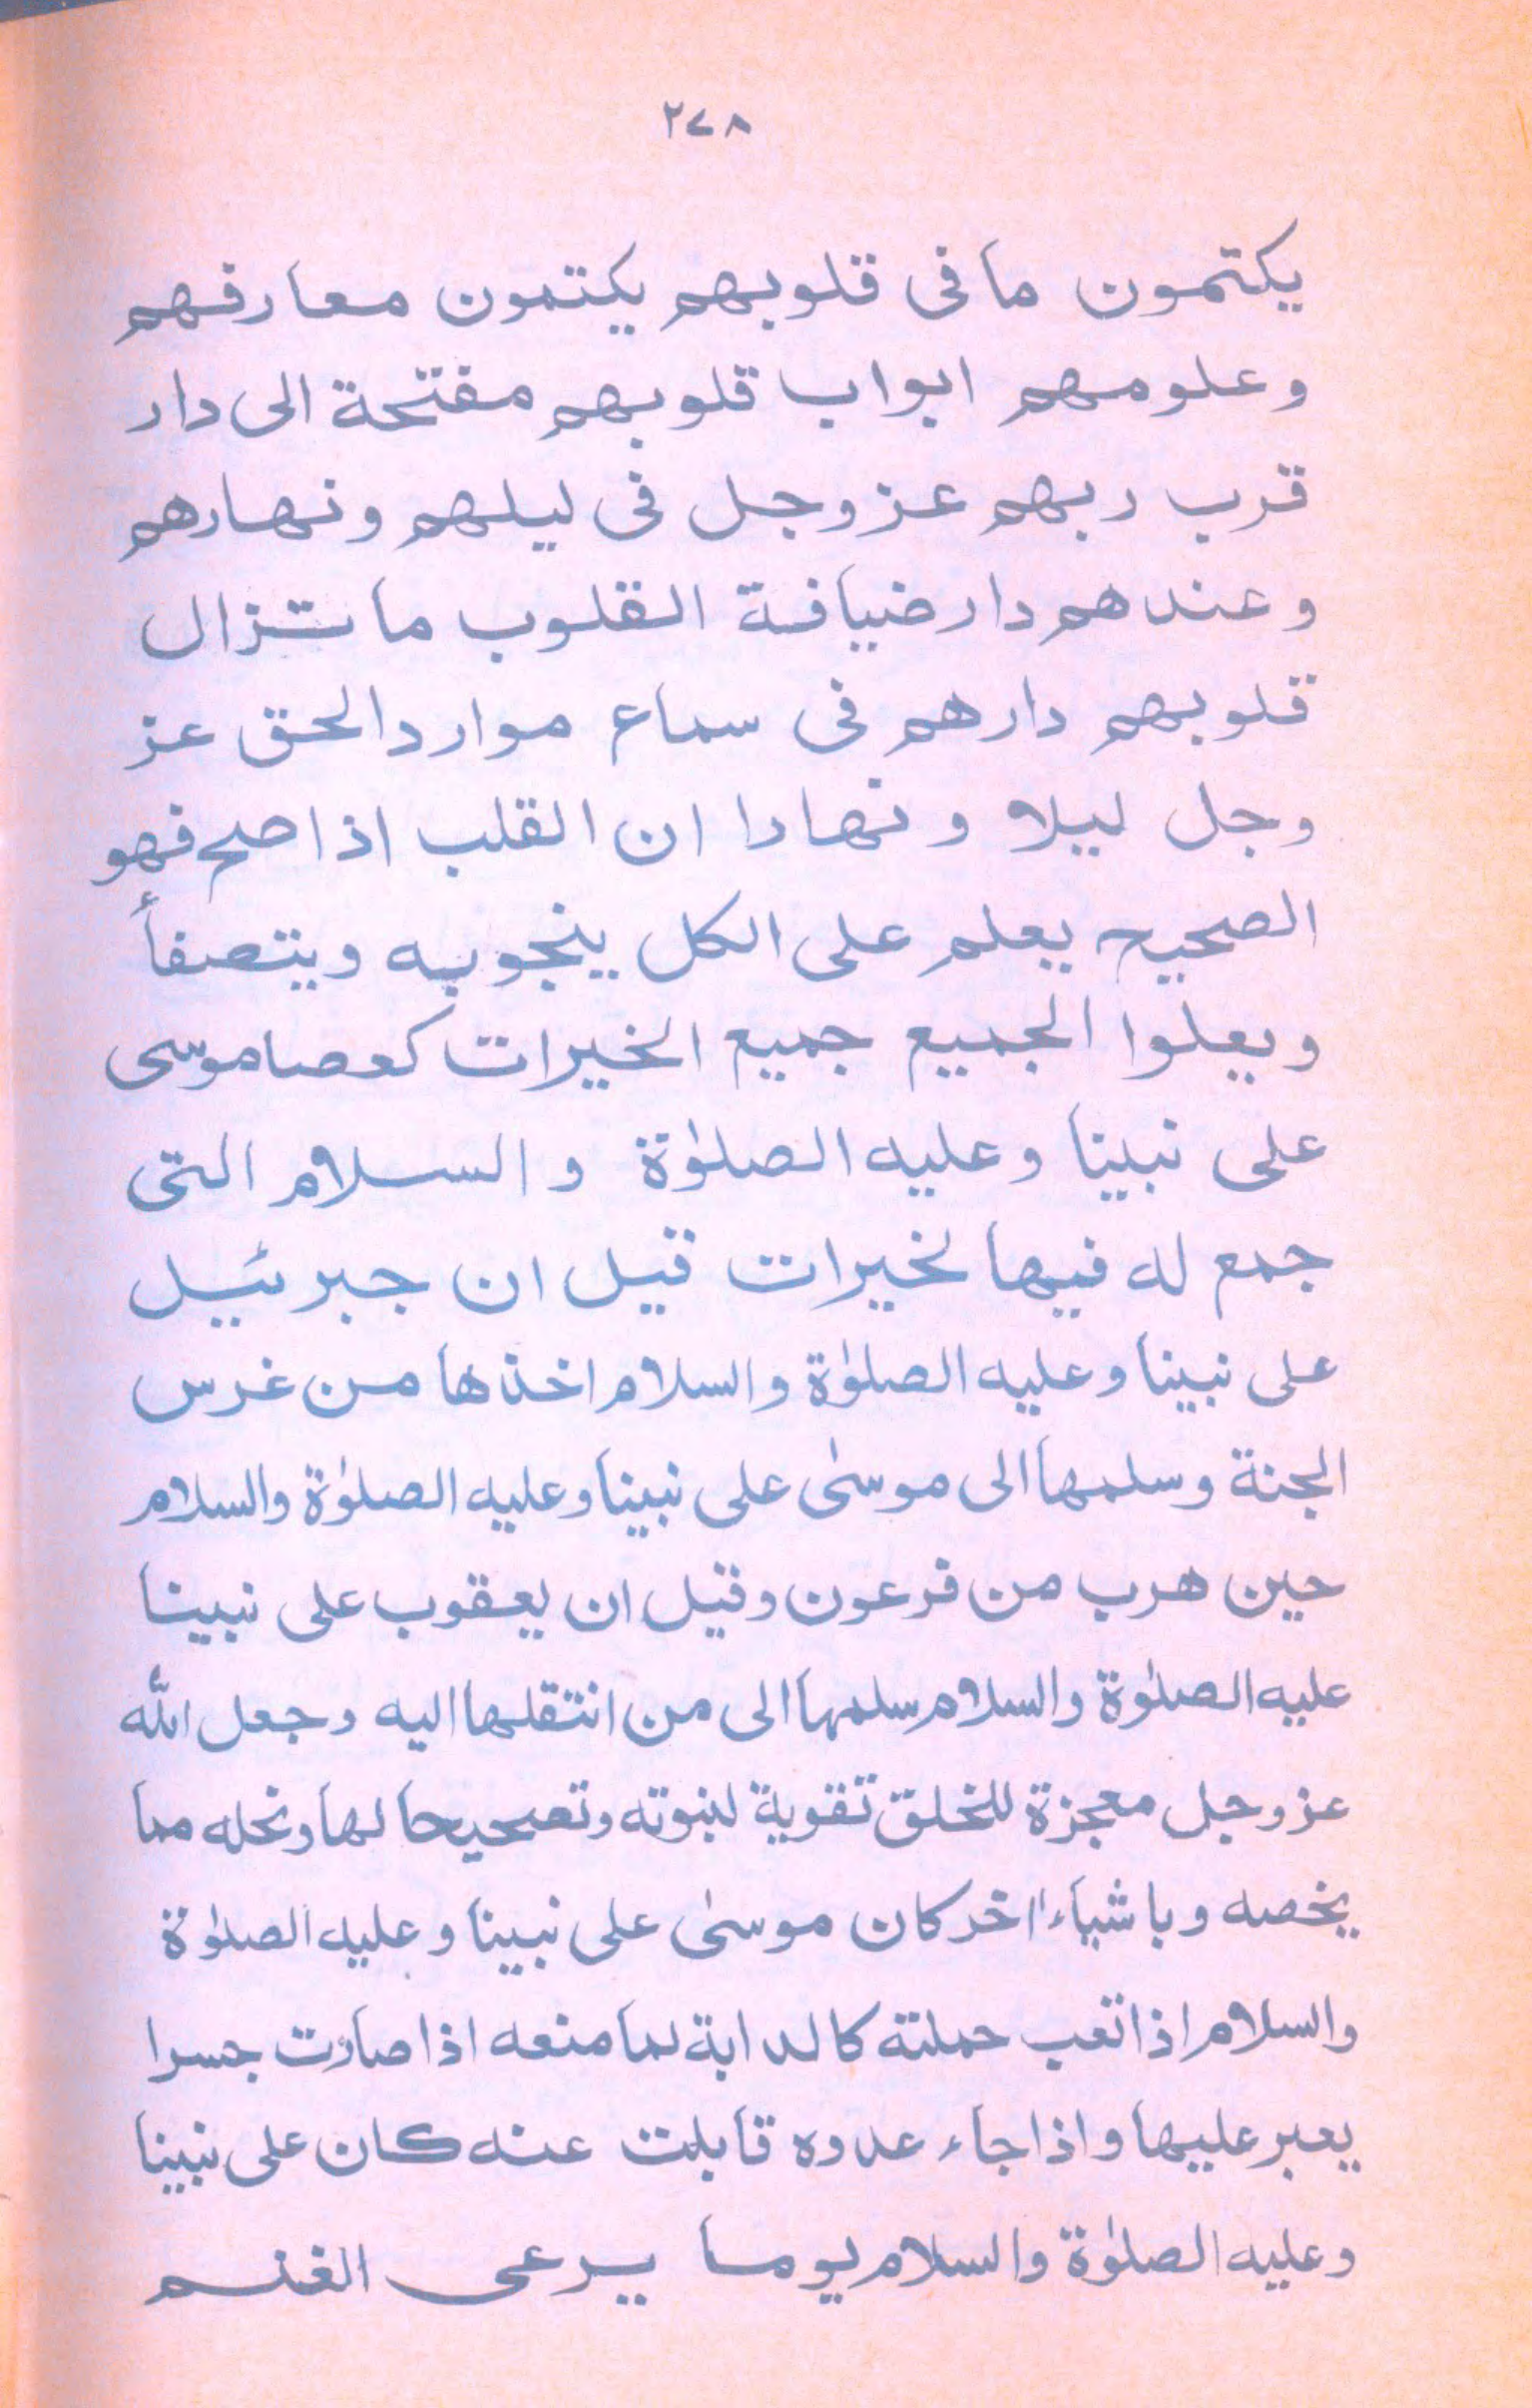 ٢٧٨
يكتمون ما فى قلوبهم يكتمون معارفهم
وعلومهم ابواب قلوبهم مفتحة الى دار
قرب ربهم عز وجل فى ليلهم ونهارهم
وعندهم دار ضيافة القلوب ما تزال
قلوبهم دارهم فى سماع موارد الحق عز
وجل ليلا ونهارا ان القلب اذا صح فهو
الصحيح يعلم على الكل ينجوبه ويتصفأ
ويعلوا الجميع جميع الخيرات كعصا موسى
على نبينا وعليه الصلوٰة والسلام التى
جمع له فيها لخيرات قيل ان جبرئيل
على نبينا وعليه الصلوٰة والسلام اخذها من غرس
الجنة وسلمها الى موسىٰ على نبينا وعليه الصلوٰة والسلام
حين هرب من فرعون وقيل ان يعقوب على نبينا
عليه الصلوٰة والسلام سلمها الى من انتقلها اليه وجعل الله
عز وجل معجزة للخلق تقوية لبنوته وتصحيحا لها ونحله مما
يخصه وباشياء اخر كان موسىٰ على نبينا وعليه الصلوٰة
والسلام اذا تعب حملته كالدابة لما منعه اذا صارت جسرا
يعبر عليها واذا جاء عدوه قابلت عنه كان على نبينا
وعليه الصلوٰة والسلام يوما يرعى الغنم